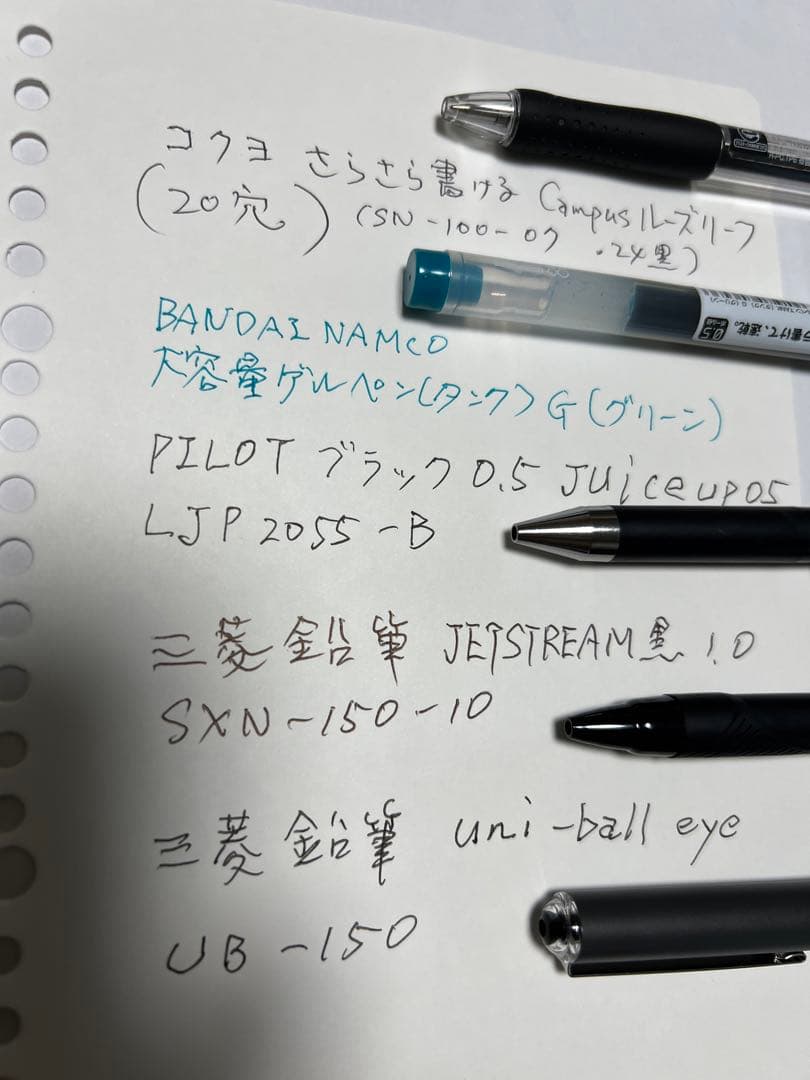 コクヨ さらさら書ける Campusルーズリーフ
(20穴) (SN-100-07 .24黒)
BANDAI NAMCO
大容量ゲルペン(タンク) G (グリーン)
0.5
PILOT ブラック 0.5 Juice up 05
LJP 2055-B
三菱鉛筆 JETSTREAM黒 1.0
SXN-150-10
三菱鉛筆 uni-ball eye
UB-150